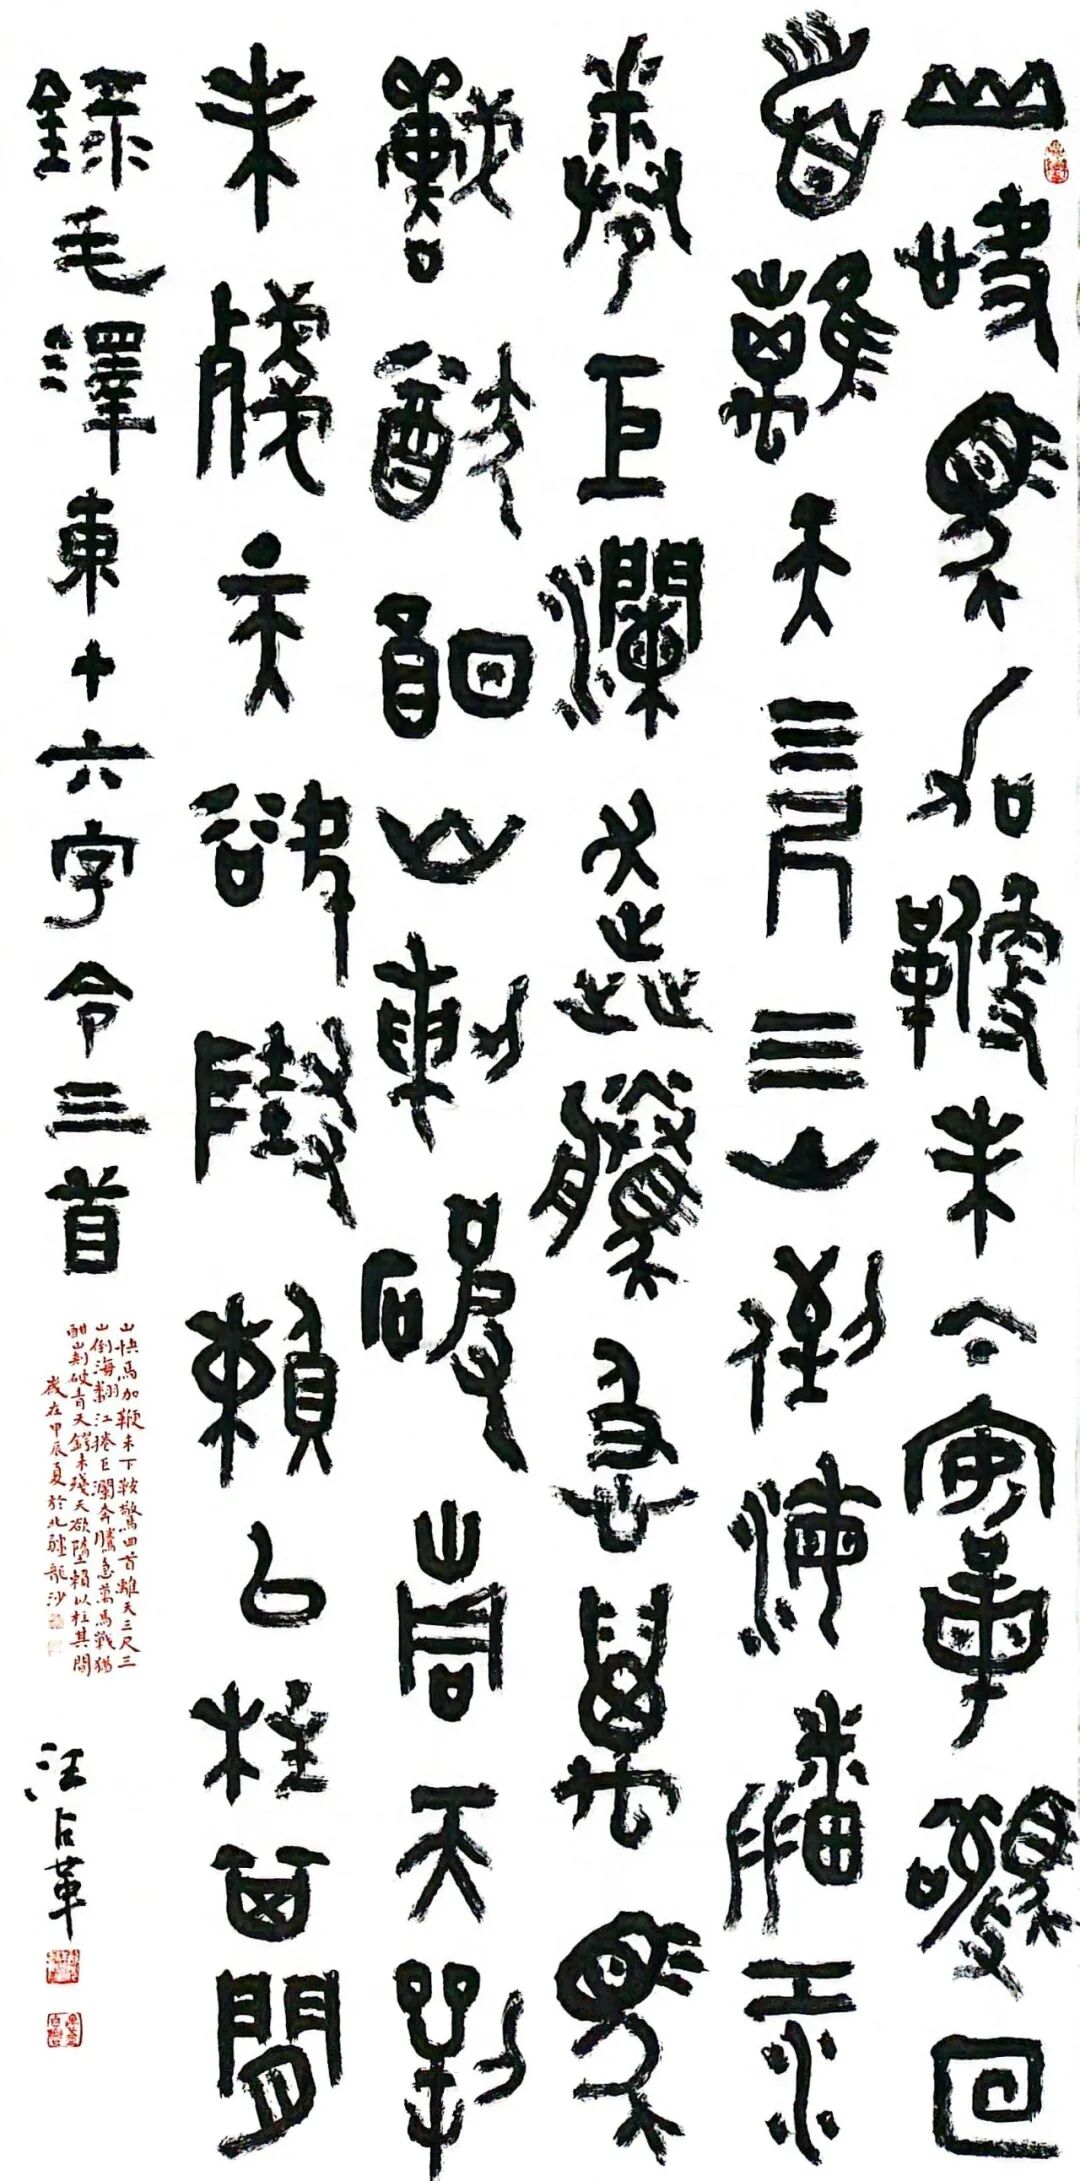 山快馬加鞭未下鞍驚回
首離天三尺三山倒海翻江
卷巨瀾奔騰急萬馬
戰猶酣山刺破青天鍔
未殘天欲墮賴以柱其間
錄毛澤東十六字令三首
山快馬加鞭未下鞍驚回首離天三尺三
山倒海翻江捲巨瀾奔騰急萬馬戰猶
酣山刺破青天鍔未殘天欲墮賴以柱其間
歲在甲辰夏於北疆龍沙
汪占革